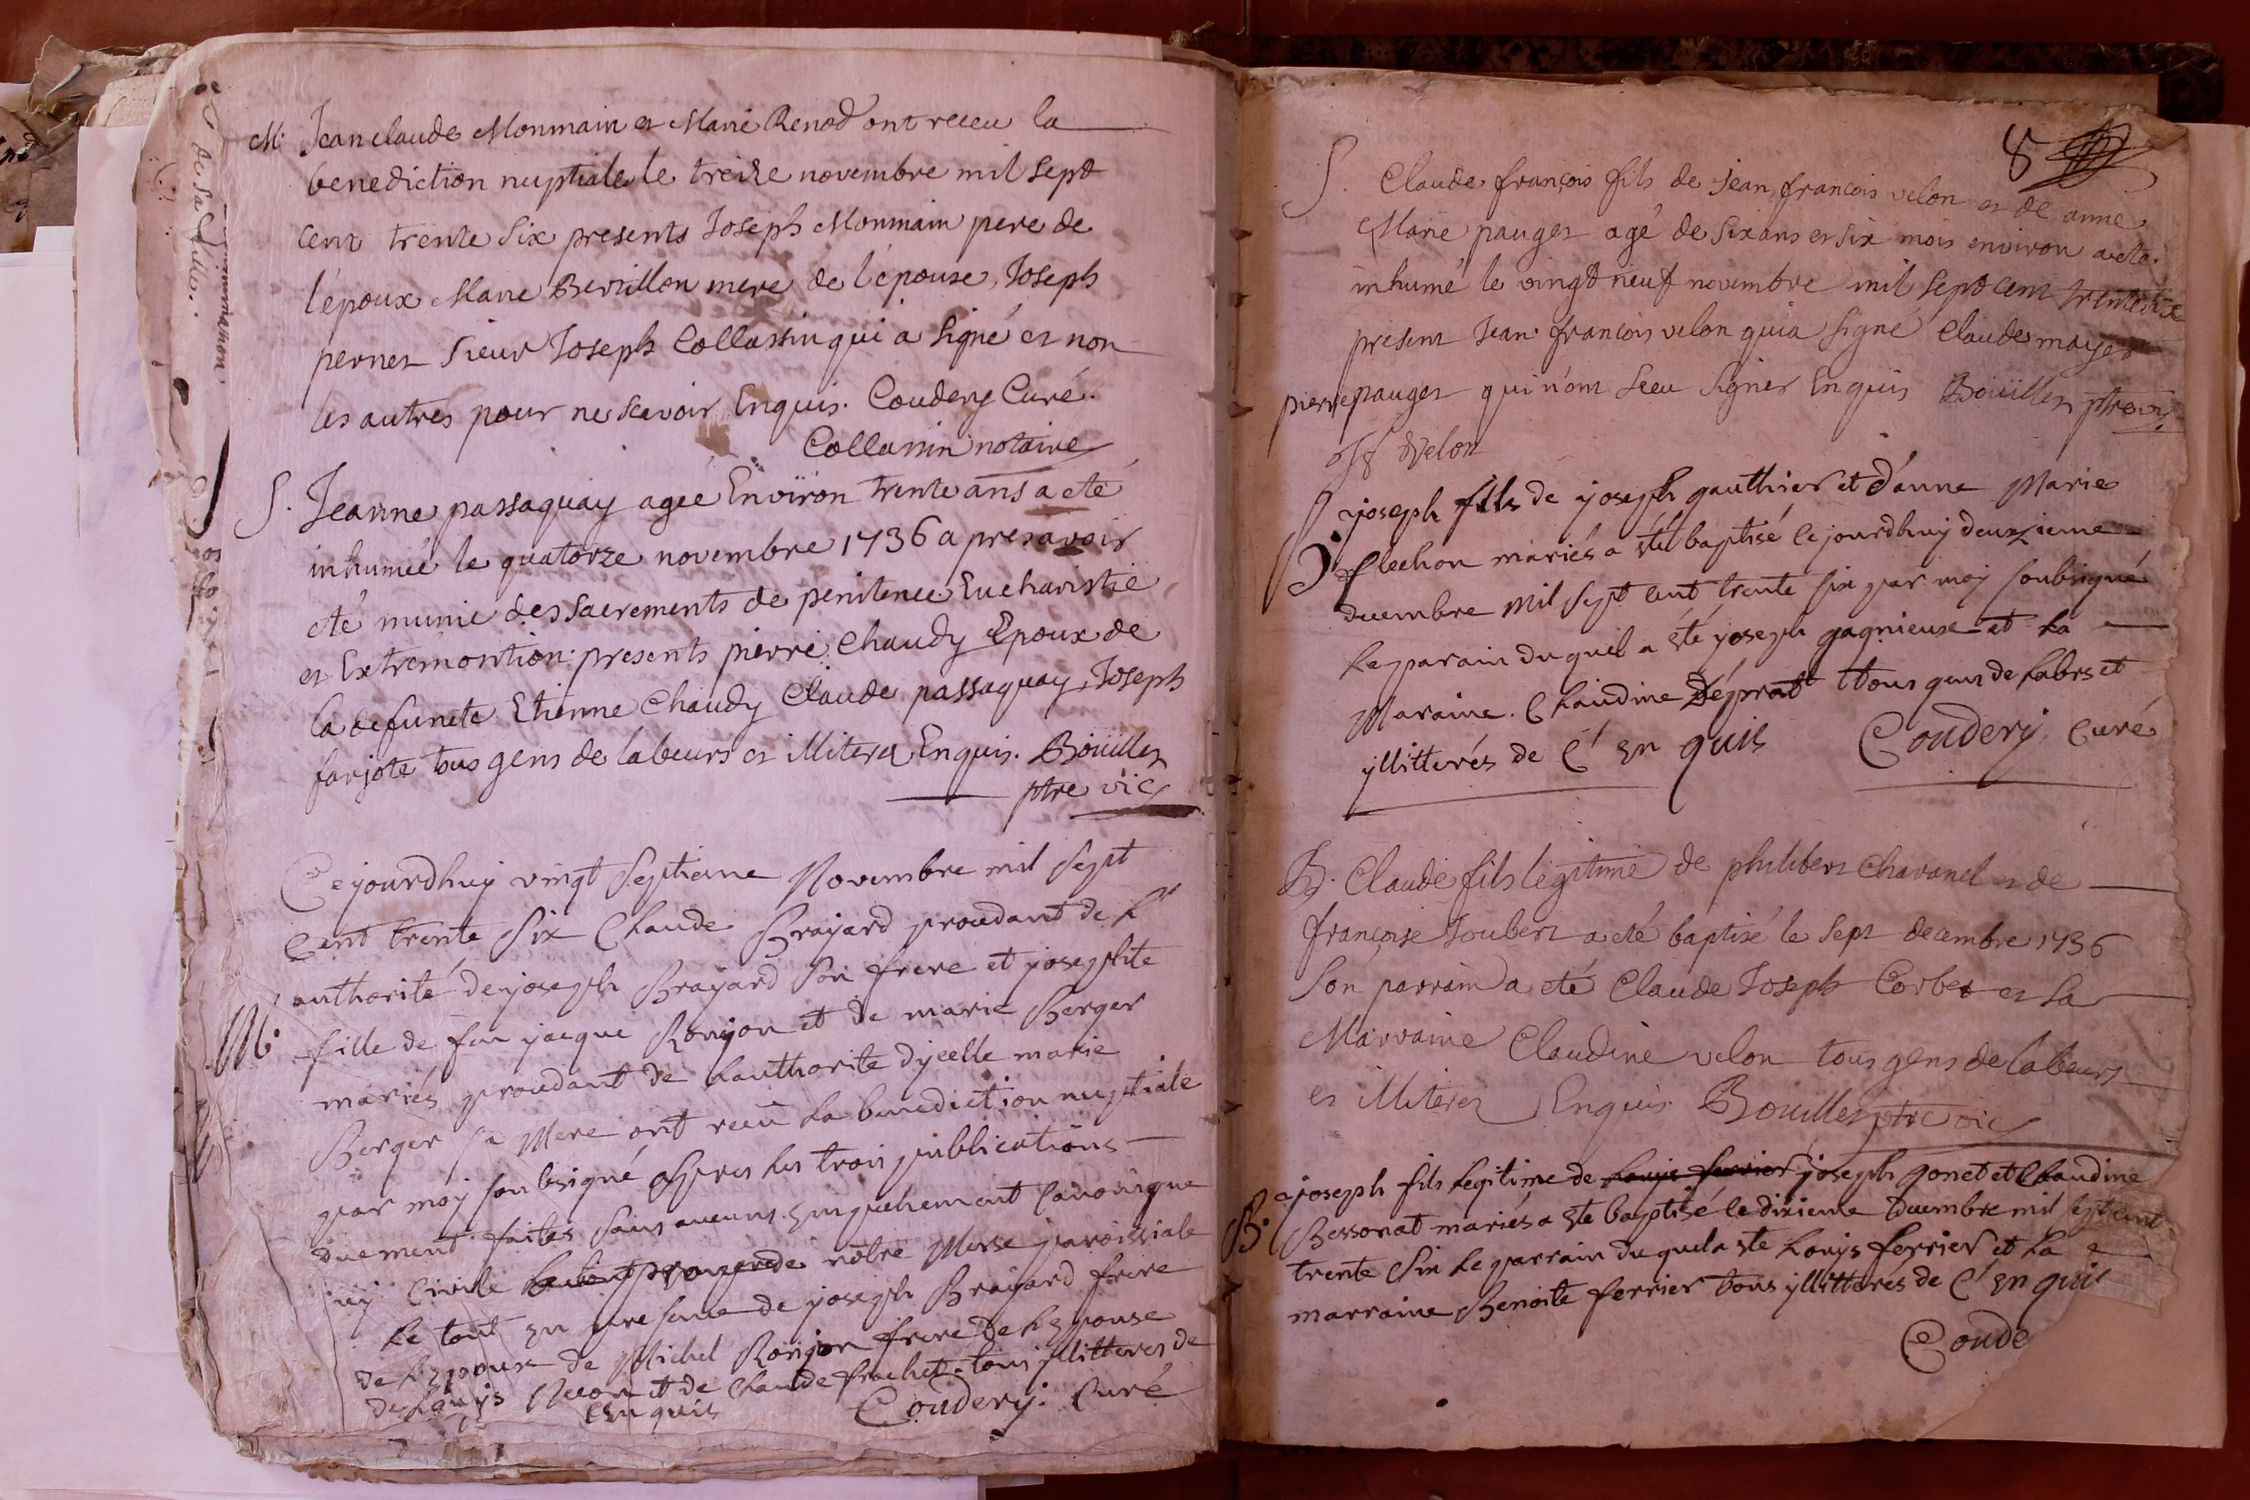 M. Jean claude Monmain et Marie Renod ont receu la
benediction nuptiale le treize novembre mil sept
cent trente six presents Joseph Monmain pere de
l'époux Marie Bevillon mere de l'épouse, Joseph
pernet Sieur Joseph Collassin qui a signé et non
les autres pour ne scavoir Enquis. Coudery Curé.
Collassin notaire
S. Jeanne passaquay agée Environ trente ans a eté
inhumée le quatorze novembre 1736 apres avoir
eté munie des sacrements de penitence Eucharistie
et Extremontion: presents pierre Chaudy Epoux de
la defuncte Etienne Chaudy Claude passaquay, Joseph
farjote tous gens de labeurs et illiterez Enquis. Boüillet
ptre vic
Ce jourdhuy vingt septieme Novembre mil sept
Cent trente Six Claude Brayard proudant de L'
authorité de joseph Brayard son frere et josephte
M. fille de feu jacque Ronjon et de marie Berger
mariés proudant de Lauthorite dycelle marie
Berger sa Mere ont receu La benediction nuptiale
par moy soubsigné Apres Les trois publications
duement faites sans aucuns Empechement Canonique
ny Civile nôtre Messe paroissiale
Le tout En presence de joseph Brayard frere
de L'Epoux de Michel Ronjon frere de LEpouse
de Louys et de Claude frachet tous yllitterés de
Enquis Coudery. Curé
8
S. Claude françois fils de Jean francois velon et de anne
Marie pauget agé de six ans et six mois environ a eté
inhumé le vingt neuf novembre mil sept cent trente six
present Jean francois velon qui a signé Claude mayet
pierre pauget qui n'ont sceu signer Enquis Boüillet ptre vic
Jf Velon
joseph fils de joseph gauthier et d'anne Marie
B flechon mariés a été baptisé Cejourdhuy deuxzieme
decembre mil sept cent trente six par moy soubsigné
Le parain du quel a été joseph gagnieux et La
Maraine. Claudine Déprat ttous gens de Labrs et
yllitterés de C' En quis Coudery. Curé
B. Claude fils legitime de philibert Chavanel et de
françoise Joubert a eté baptisé le sept decembre 1736
son parrain a eté Claude Joseph Corbet et la
Marraine Claudine velon tous gens de labeurs
et illiterez Enquis Bouillet ptre vic
joseph fils Legitime de Louys ferrier joseph gonet et Claudine
B. Bessonat mariés a éte baptisé le dixieme decembre mil sept cent
trente Six Le parrain du quel a éte Louys ferrier et La
marraine Benoite ferrier tous yllitterés de C' En quis
Coude